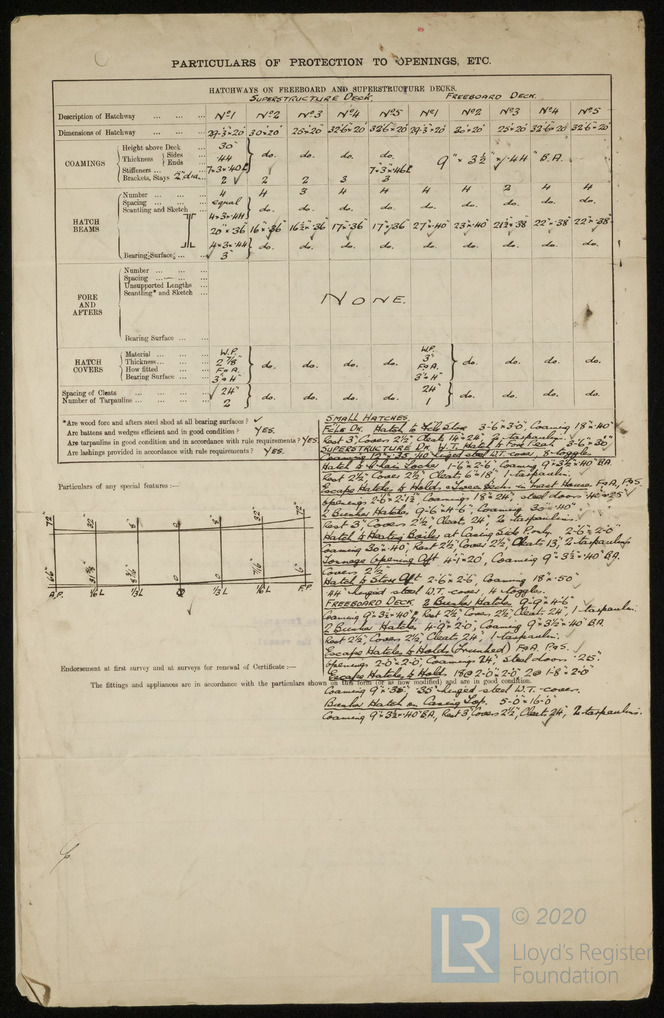 PARTICULARS OF PROTECTION TO OPENINGS, ETC.
HATCHWAYS ON FREEBOARD AND SUPERSTRUCTURE DECKS.
SUPERSTRUCTURE DECK. FREEBOARD DECK.
Description of Hatchway Nº1 Nº2 Nº3 Nº4 Nº5 Nº1 Nº2 Nº3 Nº4 Nº5
Dimensions of Hatchway 29-3"×20' 30'×20' 25'×20' 32-6"×20' 32-6"×20' 29-3"×20' 30'×20' 25'×20' 32-6"×20' 32-6"×20'
COAMINGS
Height above Deck 30"
Thickness Sides Ends .44 do. do. do. do. 9" × 3½" × .44 B.A.
Stiffeners 7"×3"×.40 7"×3"×.46
Brackets, Stays 2" dia. 2 2 2 3 3
HATCH BEAMS
Number 4 4 3 4 4 4 4 2 4 4
Spacing equal do. do. do. do. do. do. do. do. do.
Scantling and Sketch 4×3×.44
20"×.36 16"×.36 16½"×.36 17"×.36 17"×.36 27"×.40 23"×.40 21½"×.38 22"×.38 22"×.38
4×3×.44 do. do. do. do. do. do. do. do. do.
Bearing Surface 3"
FORE AND AFTERS
Number
Spacing
Unsupported Lengths
Scantling* and Sketch
NONE.
Bearing Surface
HATCH COVERS
Material W.P. W.P.
Thickness 2 7/8" 3"
How fitted F & A do. do. do. do. F & A do. do. do. do.
Bearing Surface 3" & 4" 3" & 4"
Spacing of Cleats 24" 24"
Number of Tarpaulins 2 do. do. do. do. 1 do. do. do. do.
*Are wood fore and afters steel shod at all bearing surfaces? ✓
Are battens and wedges efficient and in good condition? YES.
Are tarpaulins in good condition and in accordance with rule requirements? YES.
Are lashings provided in accordance with rule requirements? YES.
SMALL HATCHES.
Hatch to 3-6"×3-0", Coaming 18"×.40"
Rest 3", Covers 2½", Cleats 14"×24", 2-tarpaulins.
SUPERSTRUCTURE DK. W.T. Hatch to Fore Peak 3-6"×30"
hinged steel W.T. cover, 8-toggles
Hatch to Chain Locker 1-6"×2-6", Coaming 9"×3½"×.40" BA.
Rest 2½", Covers 2½", Cleats 6"×18", 1-tarpaulin.
Escape Hatches to Holds in Mast House F&A, P&S.
openings 2-6"×2-1½", Coamings 18"×.24", steel doors
2 Bunker Hatches 9-6"×4-6", Coaming 30"×.40"
Rest 3", Covers 2½", Cleats 24", 2-tarpaulins.
Hatch to Heating Boiler at Casing Side P. only 2-6"×2-0"
Coaming 30"×.40", Rest 2½", Cover 2½", Cleats 13", 2-tarpaulins
Tonnage Opening Aft 4-1"×20', Coaming 9"×3½"×.40" BA.
Covers 2½"
Hatch to Store Aft 2-6"×2-6", Coaming 18"×.50"
.44" hinged steel W.T. cover, 4 toggles.
FREEBOARD DECK 2 Bunker Hatches 9-9"×4-6"
Coaming 9"×3½"×.40", Rest 2½", Covers 2½", Cleats 24", 1-tarpaulin.
2 Bunker Hatches 4-9"×2-0", Coaming 9"×3½"×.40" B.A.
Rest 2½", Covers 2½", Cleats 24", 1-tarpaulin.
Escape Hatches to Holds (Trunked) F&A P&S.
openings 2-0"×2-0", Coamings 24", steel doors .25"
Escape Hatches to Holds 18@ 2-0"×2-0", 2@ 1-8"×2-0"
Coaming 9"×.35" .35" hinged steel W.T. covers.
Bunker Hatch on Casing Top. 5-0"×16-0"
Coaming 9"×3½"×.40" BA, Rest 3", Covers 2½", Cleats 24", 2-tarpaulins.
Particulars of any special features:—
72" 32" 8" 0 8" 32" 72"
66" 0 0 6"
A.P. ⅙L ⅓L ⅓L ⅙L F.P.
Endorsement at first survey and at surveys for renewal of Certificate:—
The fittings and appliances are in accordance with the particulars shown on this form (or as now modified) and are in good condition.
LR
© 2020
Lloyd's Register
Foundation